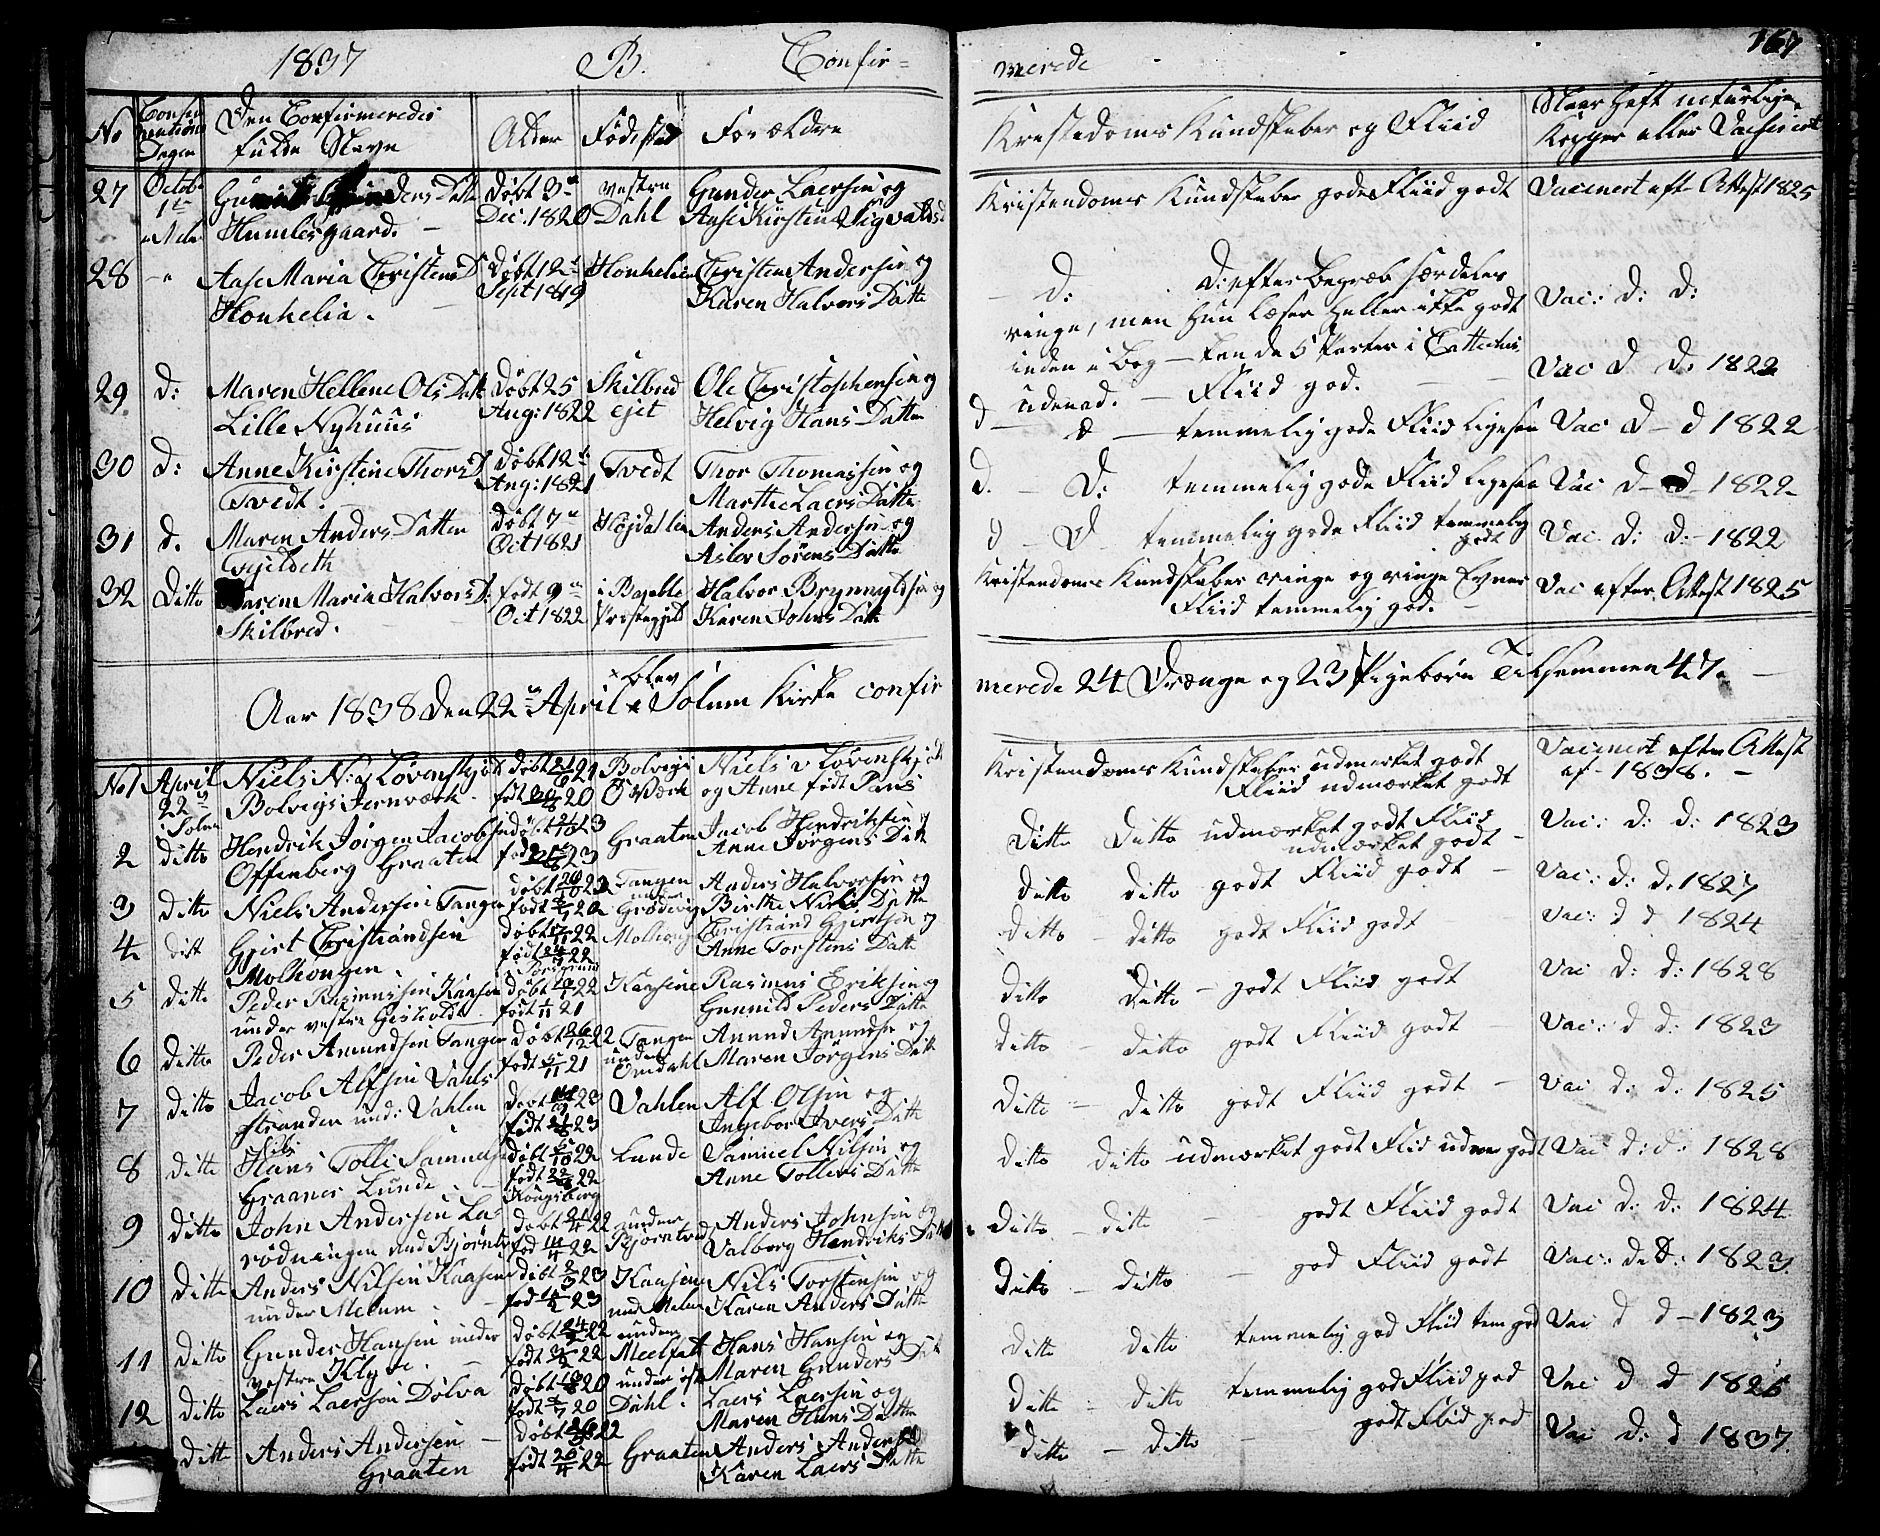 1837 B. Confir=
merede 167
No Confirmations Dagen Den Confirmeredes fulde Navn Alder Födested Forældre
Kristedoms Kundskaber og Fliid
Naar Haft naturlige Kopper eller Vaccineret
27 Octob. 1ste Humlesgaard. Döbt 3de Dec. 1820 vestre Dahl Gunder Laersen og Aase Kirstine Sigvalds
Kristendoms Kundskaber gode Fliid godt Vaccinert eft. Attest 1825
28 Aase Maria Christens D. Honhelia. Döbt 12te Sept 1819 Honhelien Christen Andersen og Karen Halvors Datte
D: D: efter Begreb særdeles ringe, men Hun læser heller ikke godt inden i Bog – kan de 5 Parter i Cattechis. udenad. – Fliid god. Vac: d: d:
29 d: Maren Hellene Ols Datt Lille Nyhuus Döbt 25 Aug: 1822 Skilbredejet Ole Christophersen og Helvig Hans Datter
d – d – temmelig gode Fliid ligesaa Vac d d. 1822
30 d: Anne Kirstine Thors D Tvedt. Döbt 12te Aug: 1821 Tvedt Thor Thomassen og Marthe Laers Datte
d. – D: temmelig gode Fliid ligesaa Vac d – d 1822
31 d. Maren Anders Datter Gjeldeth Döbt 7de Oct 1821 Höjdahlen Anders Andersen og Aslov Sörens Datte
d – D temmelig gode Fliid temmelig godt Vac d – d – 1822
Vac: d: d: – 1822
32 Ditto Karen Maria Halvors D. Skilbred. födt 9de Oct 1822 i Bamble Præstegjeld Halvor Brynnyldsen og Karen Johns Datte
Kristendoms Kundskaber ringe og ringe Evner Fliid temmelig god. – Vac efter Attest 1825
Aar 1838 Den 22de April blev i Solum Kirke confir
merede 24 Drænge og 23 Pigebörn Tilsammen 47. –
No 1 April 22de i Solum Niels N: v Lövenskjold Bolvigs Jernværk. döbt 21/6 21 födt 30/8 20 Bolvigs Værk Niels v Lövenskjold og Anne födt Paus
Kristendoms Kundskaber udmærket godt Fliid udmærket godt Vaccinert efter Attest af – 1838. –
2 ditto Hendrik Jörgen Jacobsen Offenberg Graaten döbt 2/10 23 Graaten Jacob Hendriksen og Anne Jörgens Datt
Ditto Ditto udmærket godt Fliid udmærket godt – Vac: d: d: 1823
3 Ditto Niels Andersen Tangen Tangen under Grödevig Anders Halvorsen og Birthe Niels Datte
Ditto ditto godt Fliid godt – Vac: d: d. 1827
4 ditt Gjert Christiansen Molhougen. Molhougen Christiand Gjertsen og Anne Torstens Datt
Ditto – ditto godt Fliid godt – Vac: d d 1824
5 ditto Peder Rasmussen Kaasen under vestre Geskoldt. Kaasene Rasmus Eriksen og Gunnild Peders Datte
Ditto Ditto – godt Fliid godt Vac d: d: 1828
6 Ditto Peder Amundsen Tangen Döbt 26/12 22 födt 5/11 21 Tangen under Omdahl Amund Amundsen og Maren Jörgens Datt
Ditto – ditto godt Fliid godt – Vac: d d: 1823
7 Ditto Jacob Alfsen Vahls stranden und: Vahlen Vahlen Alf Olsen og Ingebor Ivers Datte
Ditto – ditto godt Fliid godt – Vac d: d: 1825
8 ditto Hans Tolli Samuelsen Graanes Lunde. – Kongsberg Lunde Samuel Nilsen og Anne Tollevs Datte
Ditto ditto udmærket godt Fliid udmær godt Vac d: d: 1828
9 Ditto John Andersen La= rödningen und Bjorntv under Bjorntvedt Anders Johnsen og Valborg Hendriks Datt
Ditto – ditto – godt Fliid godt Vac d: d: 1824
10 Ditto Anders Nilsen Kaasene under Melum. – Kaasene und Melum Nils Torstensen og Karen Anders Datte
Ditto – ditto – god Fliid godt Vac: d: D: 1823.
11 Ditto Gunder Hansen under vestre Klyve. – Hans Hansen og Maren Gunders Datt
Ditto ditto temmelig god Fliid tem god Vac d d – 1823
12 Ditto Laers Laersen Dölva under öst Dahl. Laers Laersen og Maren Hans Datte
Ditto – ditto temmelig god Fliid god Vac d d 1825
Ditto Anders Andersen – Graaten födt 20/4 22 Graaten Anders Andersen Karen Laers Datte
Ditto – ditto – godt Fliid god Vac d: d 1837